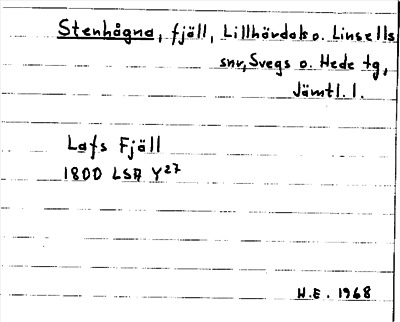 Stenhågna, fjäll, Lillhärdals o. Linsells
snr, Svegs o. Hede tg,
Jämtl. l.
Lafs Fjäll
1800 LSA Y27
H.E. 1968